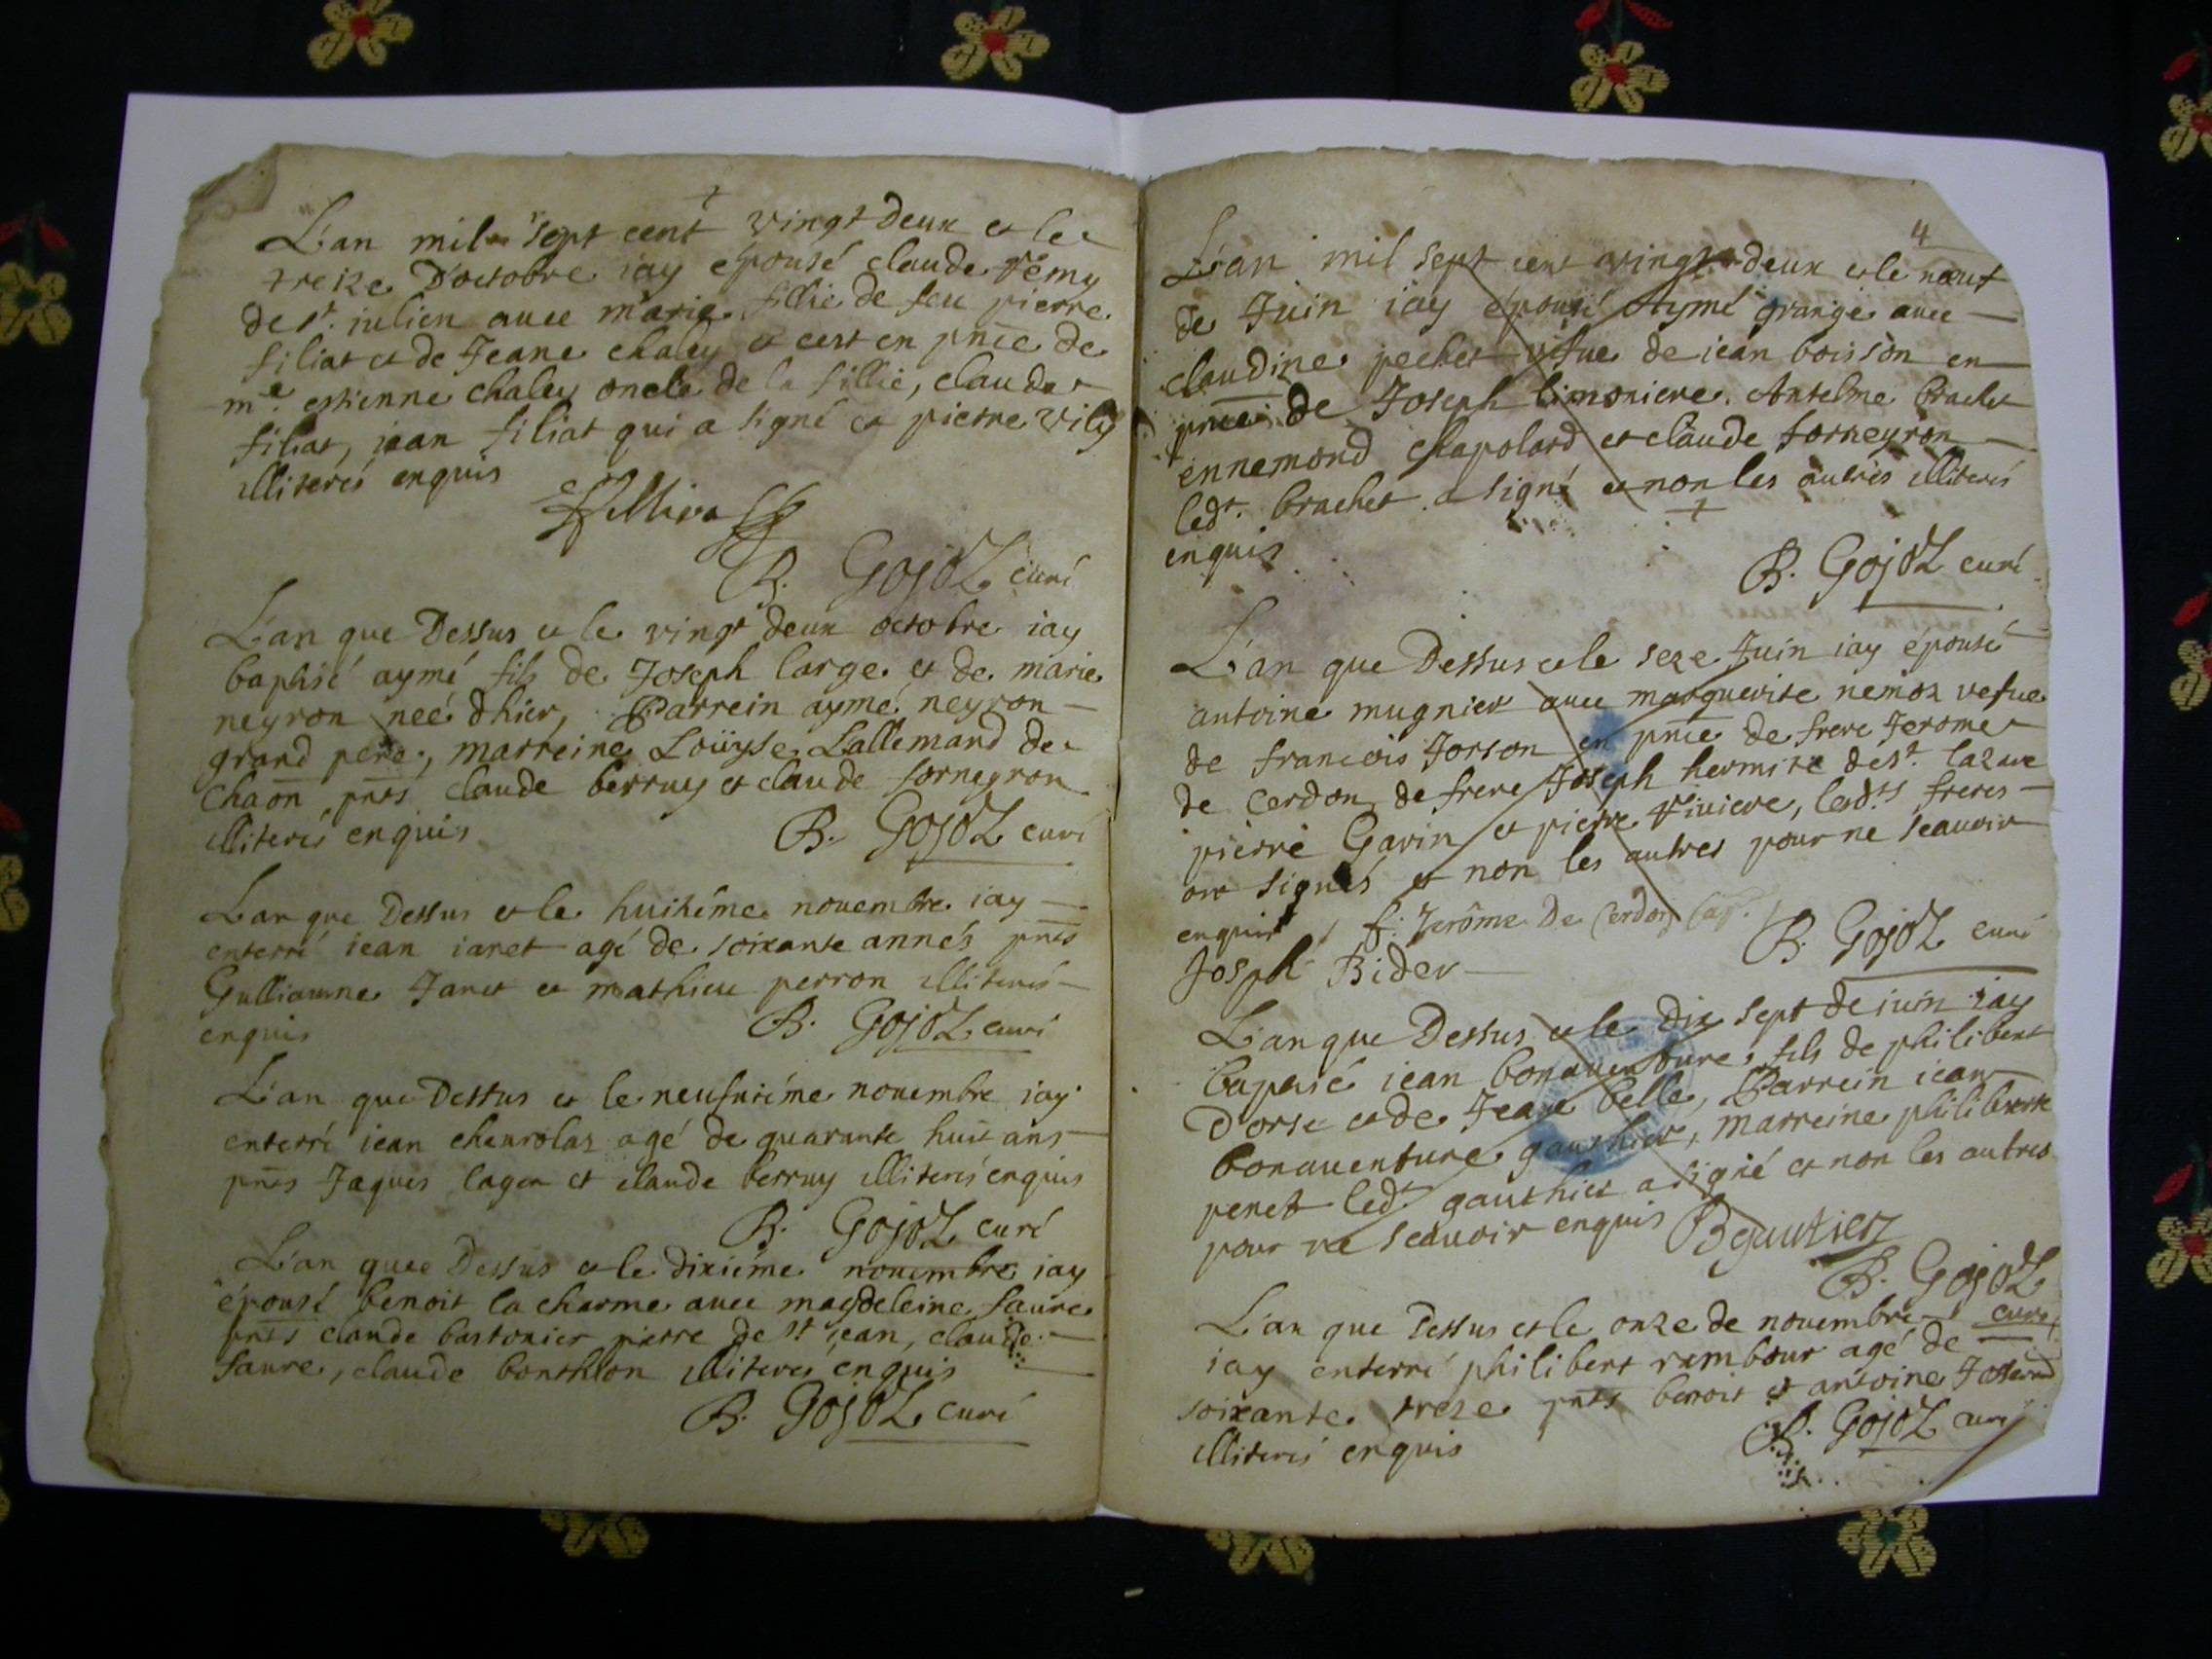 L'an mil sept cent vingt deux et le
treize d'octobre iay epousé claude rémy
de st. julien avec marie fillie de feu pierre
filiat et de Jeane chaley et cest en pnce de
me. estienne chaley oncle de la fillie, claude
filiat, jean filiat qui a signé et pierre vily
illiterés enquis
B. GojoZ curé
L'an que Dessus et le vingt deux octobre iay
baptisé aymé fils de Joseph large et de marie
neyron neé dhier, Parrein aymé neyron
grand pere, marreine Loüyse Lallemand de
Chaon pnts claude berruy et claude forneyron
illiterés enquis B. GojoZ curé
L'an que Dessus et le huitiême novembre iay
enterré iean iaret agé de soixante annés pnts
Gulliaume Jaret et mathieu perron illiterés
enquis B. GojoZ curé
L'an que Dessus et le neufuiéme nouembre iay
enterré iean cheurolaz agé de quarante huit ans
pnts Jaques lager et claude berruy illiterés enquis
B. GojoZ curé
L'an que Dessus et le dixiéme nouembre iay
épousé benoit la charme auec magdeleine faure
pnts claude bastonier pierre de st iean, claude
faure, claude bonthlon illiteres enquis
B. GojoZ curé
4
L'an mil sept cent vingt deux et le neuf
de Juin iay épousé Aymé grange auec
claudine pechet vefue de iean boisson en
pnce de Joseph limoniere, Antelme brachet
ennemond chapolard et claude forneyron
ledt. brachet a signé et non les autres illiterés
enquis
B. GojoZ curé
L'an que Dessus et le seze Juin iay épousé
antoine mugnier auec marguerite nemoz vefue
de francois Jorson en pnce de frere Jerome
de Cerdon de frere Joseph hermite de st. lazare
pierre Gavin et pierre riuiere, lesdts freres
ont signés et non les autres pour ne scauoir
enquis f: Jerôme De Cerdon Cap.
B. GojoZ curé
Josph Rider
L'an que Dessus et le dix sept de iuin iay
baptisé iean bonauenture, fils de philibert
Dorse et de Jeane belle, Parrein iean
bonauenture gauthier, marreine philiberte
penet ledt. gauthier a signé et non les autres
pour ne scauoir enquis Bgautier
B. GojoZ
curé
L'an que Dessus et le onze de nouembre
iay enterré philibert rambour agé de
soixante treze pnts benoit et antoine Josserand
illiterés enquis B. GojoZ curé